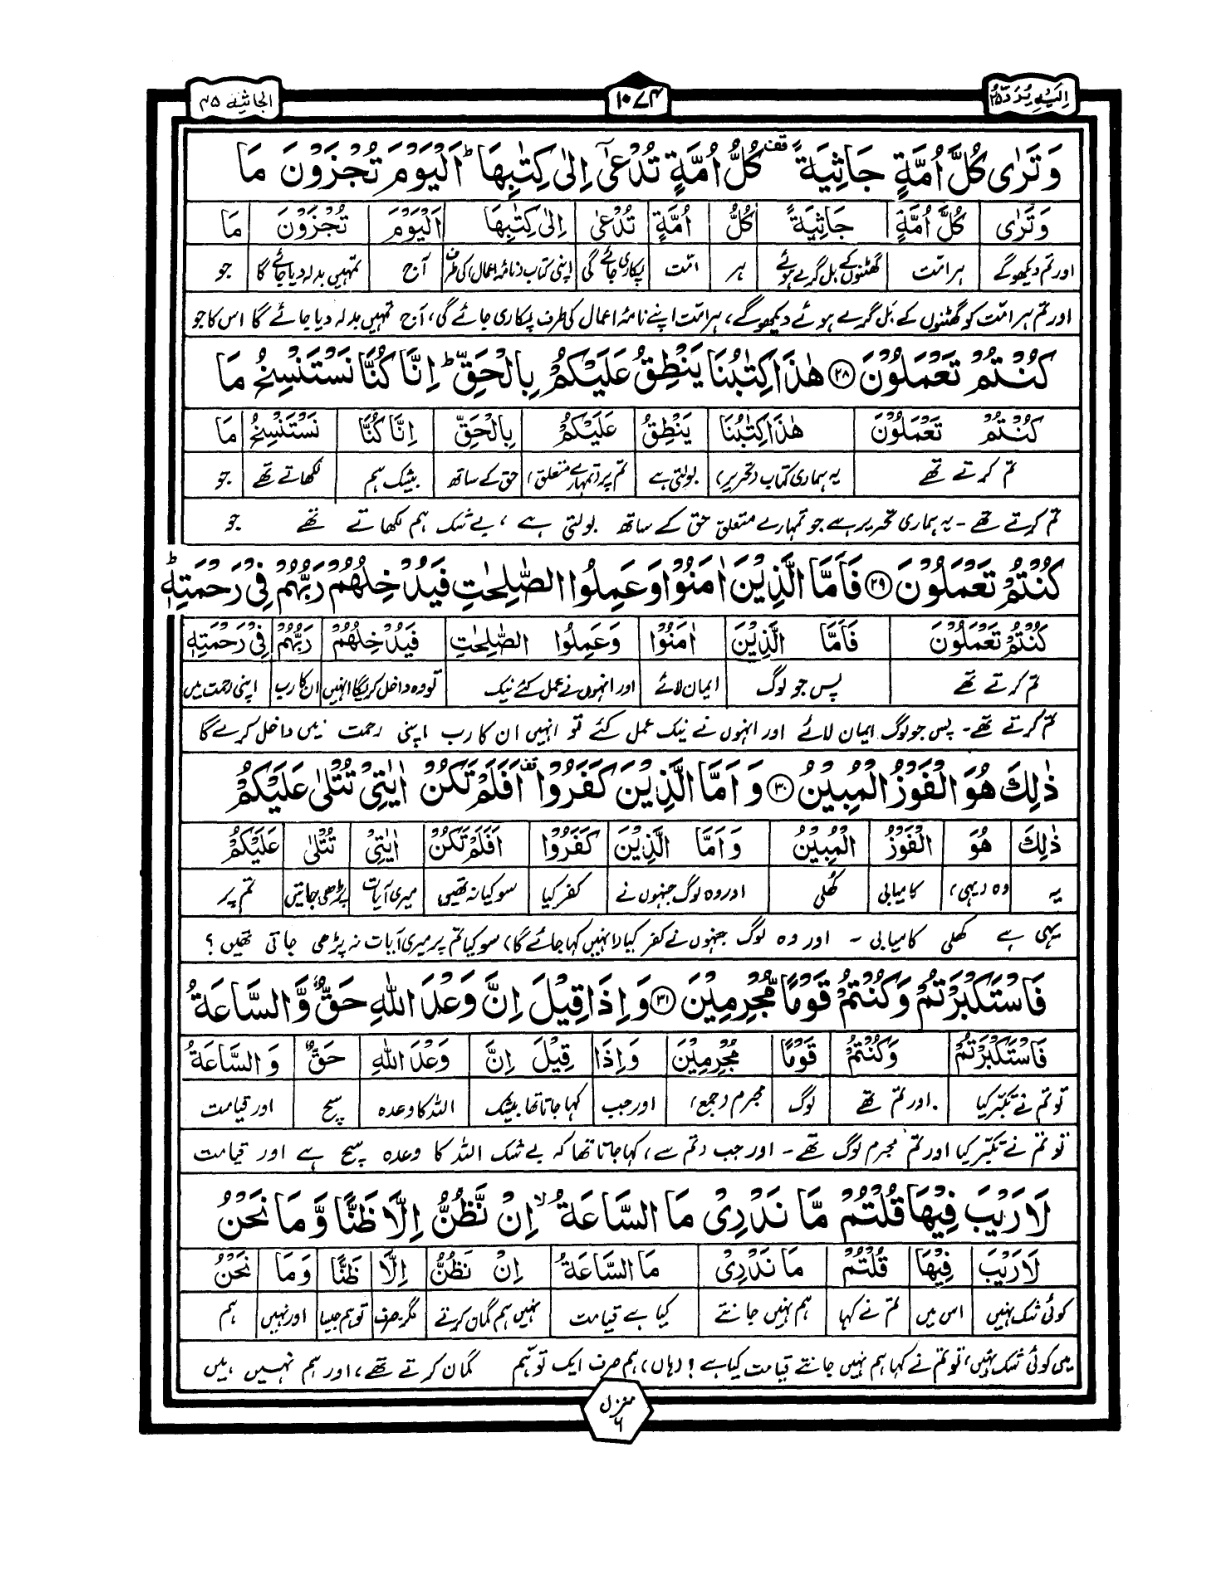 اِلَيْهِ يُرَدُّ ٢٥
١٠٧٤
الجاثیة ٤٥
وَ تَرٰى كُلَّ اُمَّةٍ جَاثِيَةً ۫ كُلُّ اُمَّةٍ تُدْعٰۤى اِلٰى كِتٰبِهَا ؕ اَلْيَوْمَ تُجْزَوْنَ مَا
وَ تَرٰى كُلَّ اُمَّةٍ جَاثِيَةً كُلُّ اُمَّةٍ تُدْعٰى اِلٰى كِتٰبِهَا اَلْيَوْمَ تُجْزَوْنَ مَا
اور تم دیکھو گے ہر امت گھٹنوں کے بل گرے ہوئے ہر امت پکاری جائے گی اپنی کتاب (نامۂ اعمال) کی طرف آج تمہیں بدلہ دیا جائے گا جو
اور تم ہر امت کو گھٹنوں کے بَل گرے ہوئے دیکھو گے، ہر امت اپنے نامۂ اعمال کی طرف پکاری جائے گی، آج تمہیں بدلہ دیا جائے گا اس کا جو
كُنْتُمْ تَعْمَلُوْنَ ﴿٢٨﴾ هٰذَا كِتٰبُنَا يَنْطِقُ عَلَيْكُمْ بِالْحَقِّ ؕ اِنَّا كُنَّا نَسْتَنْسِخُ مَا
كُنْتُمْ تَعْمَلُوْنَ هٰذَا كِتٰبُنَا يَنْطِقُ عَلَيْكُمْ بِالْحَقِّ اِنَّا كُنَّا نَسْتَنْسِخُ مَا
تم کرتے تھے یہ ہماری کتاب (تحریر) بولتی ہے تم پر (تمہارے متعلق) حق کے ساتھ بیشک ہم لکھاتے تھے جو
تم کرتے تھے - یہ ہماری تحریر ہے جو تمہارے متعلق حق کے ساتھ بولتی ہے ، بے شک ہم لکھاتے تھے جو
كُنْتُمْ تَعْمَلُوْنَ ﴿٢٩﴾ فَاَمَّا الَّذِيْنَ اٰمَنُوْا وَ عَمِلُوا الصّٰلِحٰتِ فَيُدْخِلُهُمْ رَبُّهُمْ فِيْ رَحْمَتِهٖ ؕ
كُنْتُمْ تَعْمَلُوْنَ فَاَمَّا الَّذِيْنَ اٰمَنُوْا وَ عَمِلُوا الصّٰلِحٰتِ فَيُدْخِلُهُمْ رَبُّهُمْ فِيْ رَحْمَتِهٖ
تم کرتے تھے پس جو لوگ ایمان لائے اور انہوں نے عمل کئے نیک تو وہ داخل کریگا انہیں ان کا رب اپنی رحمت میں
تم کرتے تھے - پس جو لوگ ایمان لائے اور انہوں نے نیک عمل کئے تو انہیں ان کا رب اپنی رحمت میں داخل کرے گا
ذٰلِكَ هُوَ الْفَوْزُ الْمُبِيْنُ ﴿٣٠﴾ وَ اَمَّا الَّذِيْنَ كَفَرُوْا ۫ اَفَلَمْ تَكُنْ اٰيٰتِيْ تُتْلٰى عَلَيْكُمْ
ذٰلِكَ هُوَ الْفَوْزُ الْمُبِيْنُ وَ اَمَّا الَّذِيْنَ كَفَرُوْا اَفَلَمْ تَكُنْ اٰيٰتِيْ تُتْلٰى عَلَيْكُمْ
یہ وہ (یہی) کامیابی کھُلی اور وہ لوگ جنہوں نے کفر کیا سو کیا نہ تھیں میری آیات پڑھی جاتیں تم پر
یہی ہے کھلی کامیابی - اور وہ لوگ جنہوں نے کفر کیا (انہیں کہا جائے گا) سو کیا تم پر میری آیات نہ پڑھی جاتی تھیں ؟
فَاسْتَكْبَرْتُمْ وَ كُنْتُمْ قَوْمًا مُّجْرِمِيْنَ ﴿٣١﴾ وَ اِذَا قِيْلَ اِنَّ وَعْدَ اللّٰهِ حَقٌّ وَّ السَّاعَةُ
فَاسْتَكْبَرْتُمْ وَ كُنْتُمْ قَوْمًا مُّجْرِمِيْنَ وَ اِذَا قِيْلَ اِنَّ وَعْدَ اللّٰهِ حَقٌّ وَ السَّاعَةُ
تو تم نے تکبّر کیا اور تم تھے لوگ مجرم (جمع) اور جب کہا جاتا تھا بیشک اللہ کا وعدہ سچ اور قیامت
تو تم نے تکبّر کیا اور تم مجرم لوگ تھے - اور جب (تم سے) کہا جاتا تھا کہ بے شک اللہ کا وعدہ سچ ہے اور قیامت
لَا رَيْبَ فِيْهَا قُلْتُمْ مَّا نَدْرِيْ مَا السَّاعَةُ ۙ اِنْ نَّظُنُّ اِلَّا ظَنًّا وَّ مَا نَحْنُ
لَا رَيْبَ فِيْهَا قُلْتُمْ مَا نَدْرِيْ مَا السَّاعَةُ اِنْ نَظُنُّ اِلَّا ظَنًّا وَ مَا نَحْنُ
کوئی شک نہیں اس میں تم نے کہا ہم نہیں جانتے کیا ہے قیامت نہیں ہم گمان کرتے مگر صرف توہم جیسا اور نہیں ہم
میں کوئی شک نہیں، تو تم نے کہا ہم نہیں جانتے قیامت کیا ہے ! (ہاں) ہم صرف ایک توہّم گمان کرتے تھے ، اور ہم نہیں ہیں
منزل ٦